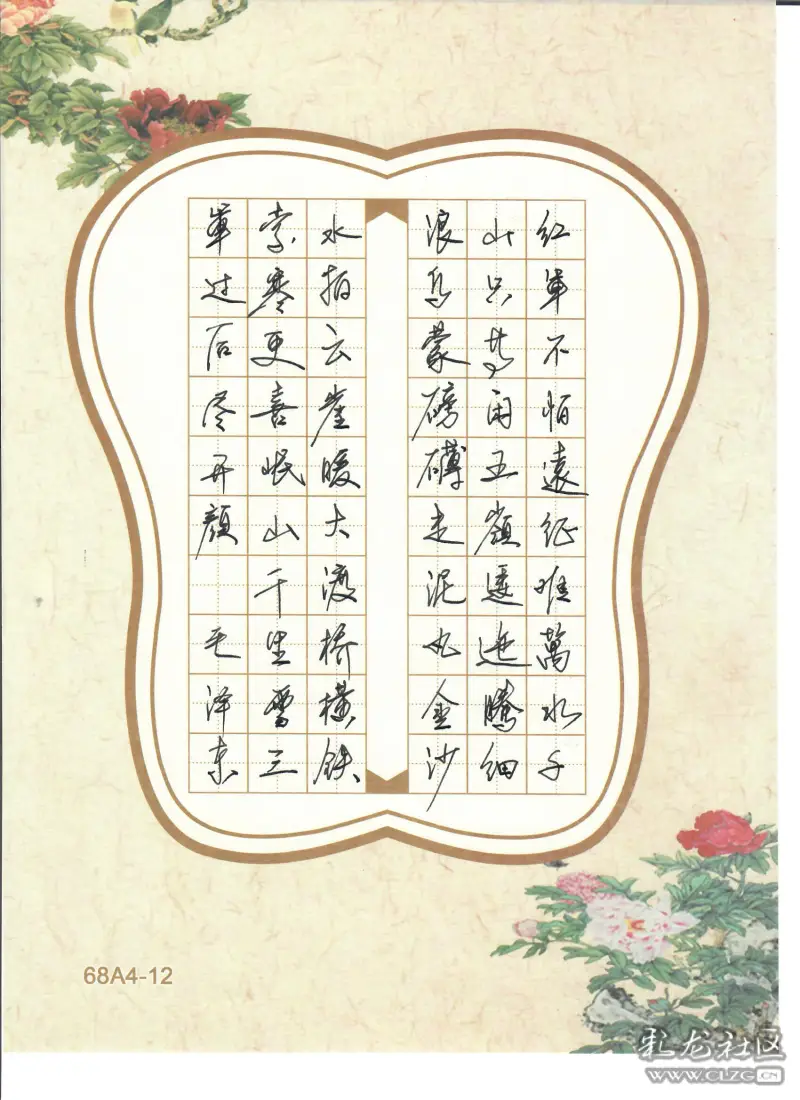 红軍不怕遠征难萬水千
山只等闲五嶺逶迤腾细
浪乌蒙磅礴走泥丸金沙
水拍云崖暖大渡桥横铁
索寒更喜岷山千里雪三
軍过后尽开颜 毛泽东
68A4-12
彩龙社区
WWW.CLZG.CN